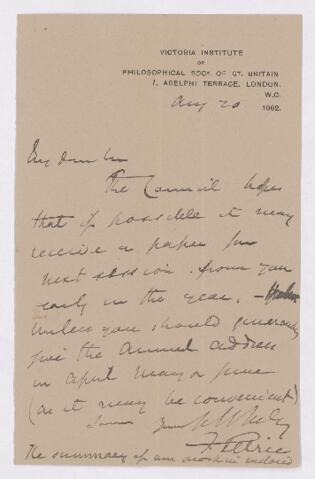 VICTORIA INSTITUTE
OR
PHILOSOPHICAL SOCY. OF GT. BRITAIN
7, ADELPHI TERRACE, LONDON.
W.C.
Aug 20 1902.
My dear Sir
The Council hopes
that if possible it may
receive a paper for
next session from you
early in the year, —
Unless you should generously
give the Annual address
in April May or June
(as it may be convenient)
F Petrie
The summary of am